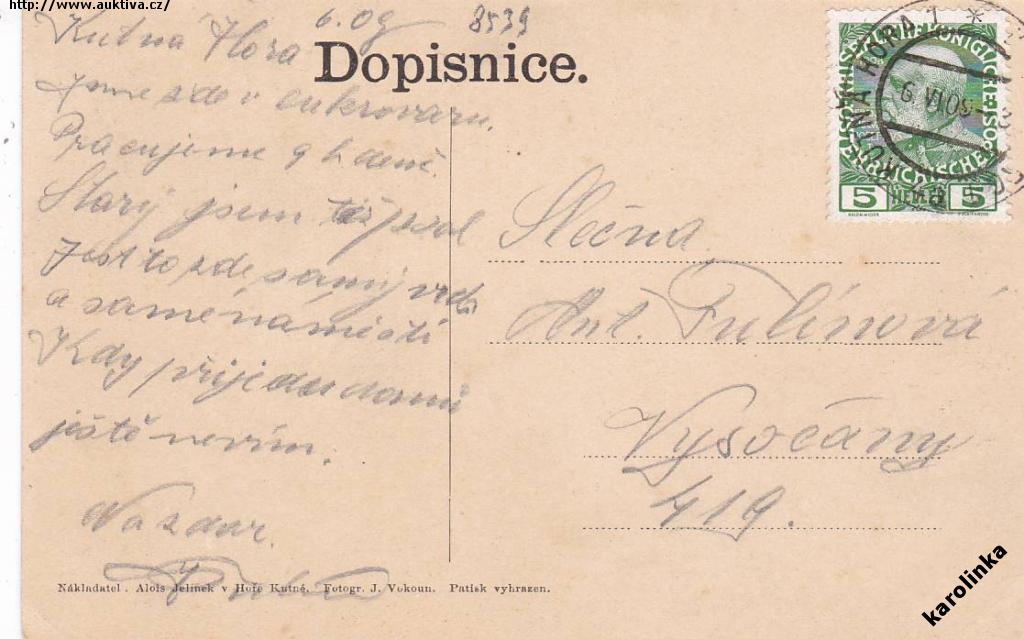 http://www.auktiva.cz/
6. 09
8539
Kutná Hora
Dopisnice.
Jsme zde v cukrovaru.
Pracujeme 9 h. denně.
Starý jsem též psal
Jest to zde samý vrch
a samé náměstí
Kdy přijedu domů
ještě nevím.
Nazdar.
Slečna
Ant. Fulínová
Vysočany
419.
KUTNÁ HORA 1
6. VI 09
5 HELLER 5
Nákladatel . Alois Jelínek v Hoře Kutné. Fotogr. J. Vokoun. Patisk vyhrazen.
karolinka